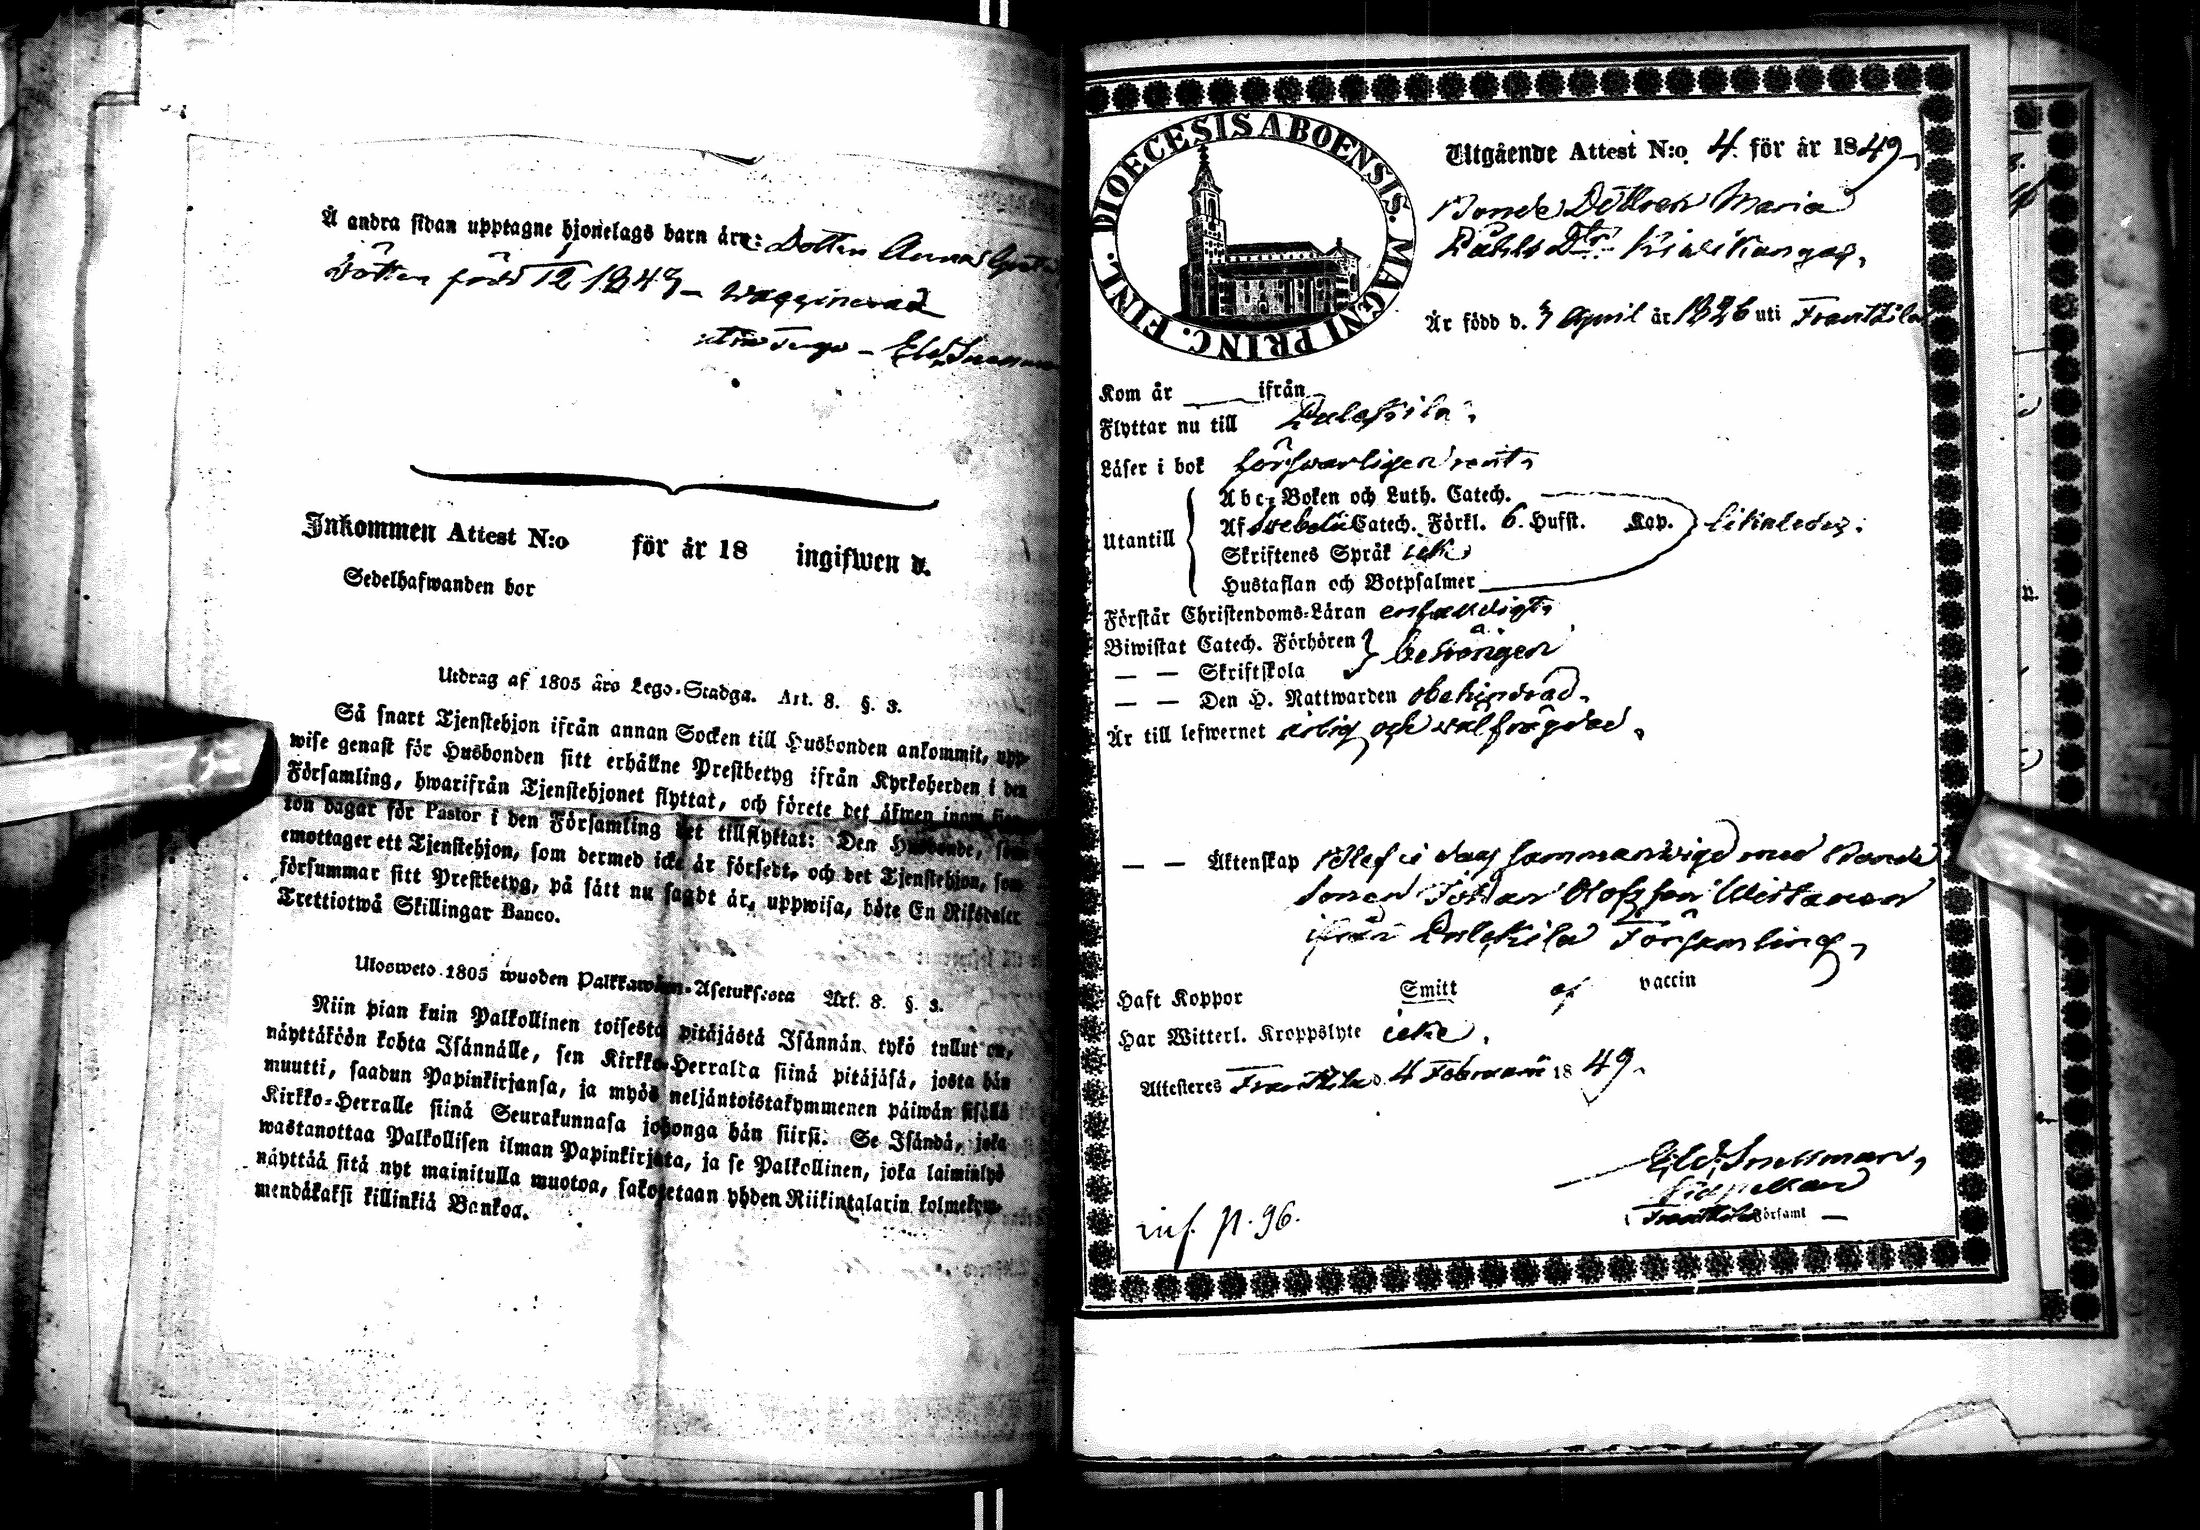 Å andra sidan upptagne hjonelags barn äro: Dottern Anna
född 12 1848 –
Inkommen Attest N:o för år 18 ingifwen d.
Sedelhafwanden bor
Utdrag af 1805 års Lego-Stadga. Art. 8. §. 3.
Så snart Tjenstehjon ifrån annan Socken till Husbonden ankommit, upp-
wise genast för Husbonden sitt erhållne Prestbetyg ifrån Kyrkoherden i den
Församling, hwarifrån Tjenstehjonet flyttat, och förete det äfwen inom fjor-
ton dagar för Pastor i den Församling det tillflyttat: Den Husbonde, som
emottager ett Tjenstehjon, som dermed icke är försedt, och det Tjenstehjon, som
försummar sitt Prestbetyg, på sätt nu sagdt är, uppwisa, böte En Riksdaler
Trettiotwå Skillingar Banco.
Ulosweto 1805 wuoden Palkkawäen-Asetuksesta Art. 8. §. 3.
Niin pian kuin Palkollinen toisesta pitäjästä Isännän tykö tullut on,
näyttäköön kohta Isännälle, sen Kirkko-Herralta siinä pitäjäsä, josta hän
muutti, saadun Papinkirjansa, ja myös neljäntoistakymmenen päiwän sisällä
Kirkko-Herralle siinä Seurakunnasa johonga hän siirsi. Se Isändä, joka
wastanottaa Palkollisen ilman Papinkirjata, ja se Palkollinen, joka laiminlyö
näyttää sitä nyt mainitulla muotoa, sakotetaan yhden Riikintalarin kolmekym-
mendäkaksi killinkiä Bankoa.
DIOECESIS ABOENSIS. MAGNI PRINC. FINL.
Utgående Attest N:o 4. för år 1849
Bonde Dottren Maria
Påhls Dtr Kiwikangas,
Är född d. 3 April år 1826 uti Frantzila
Kom år ifrån
Flyttar nu till Pulckila,
Läser i bok förswarligen rent,
Utantill
Abc-Boken och Luth. Catech.
Af Swebelii Catech. Förkl. 6. Hufst. Kap. likaledes.
Skriftenes Språk icke
Hustaflan och Botpsalmer
Förstår Christendoms-Läran enfaldigt,
Biwistat Catech. Förhören
— — Skriftskola
behörigen
— — Den H. Nattwarden obehindrad.
Är till lefwernet ärlig och wälfrägdad.
— — Äktenskap blef i dag sammanwigd med Bonde
Sonen Johan Olofsson
ifrån Pulckila Församling,
Haft Koppor Smitt af vaccin
Har Witterl. Kroppslyte icke.
Attesteres Frantzila d. 4 Februarii 1849.
Eld. Snellman,
Kapellan
i Frantzila Församl —
inf. p. 96.